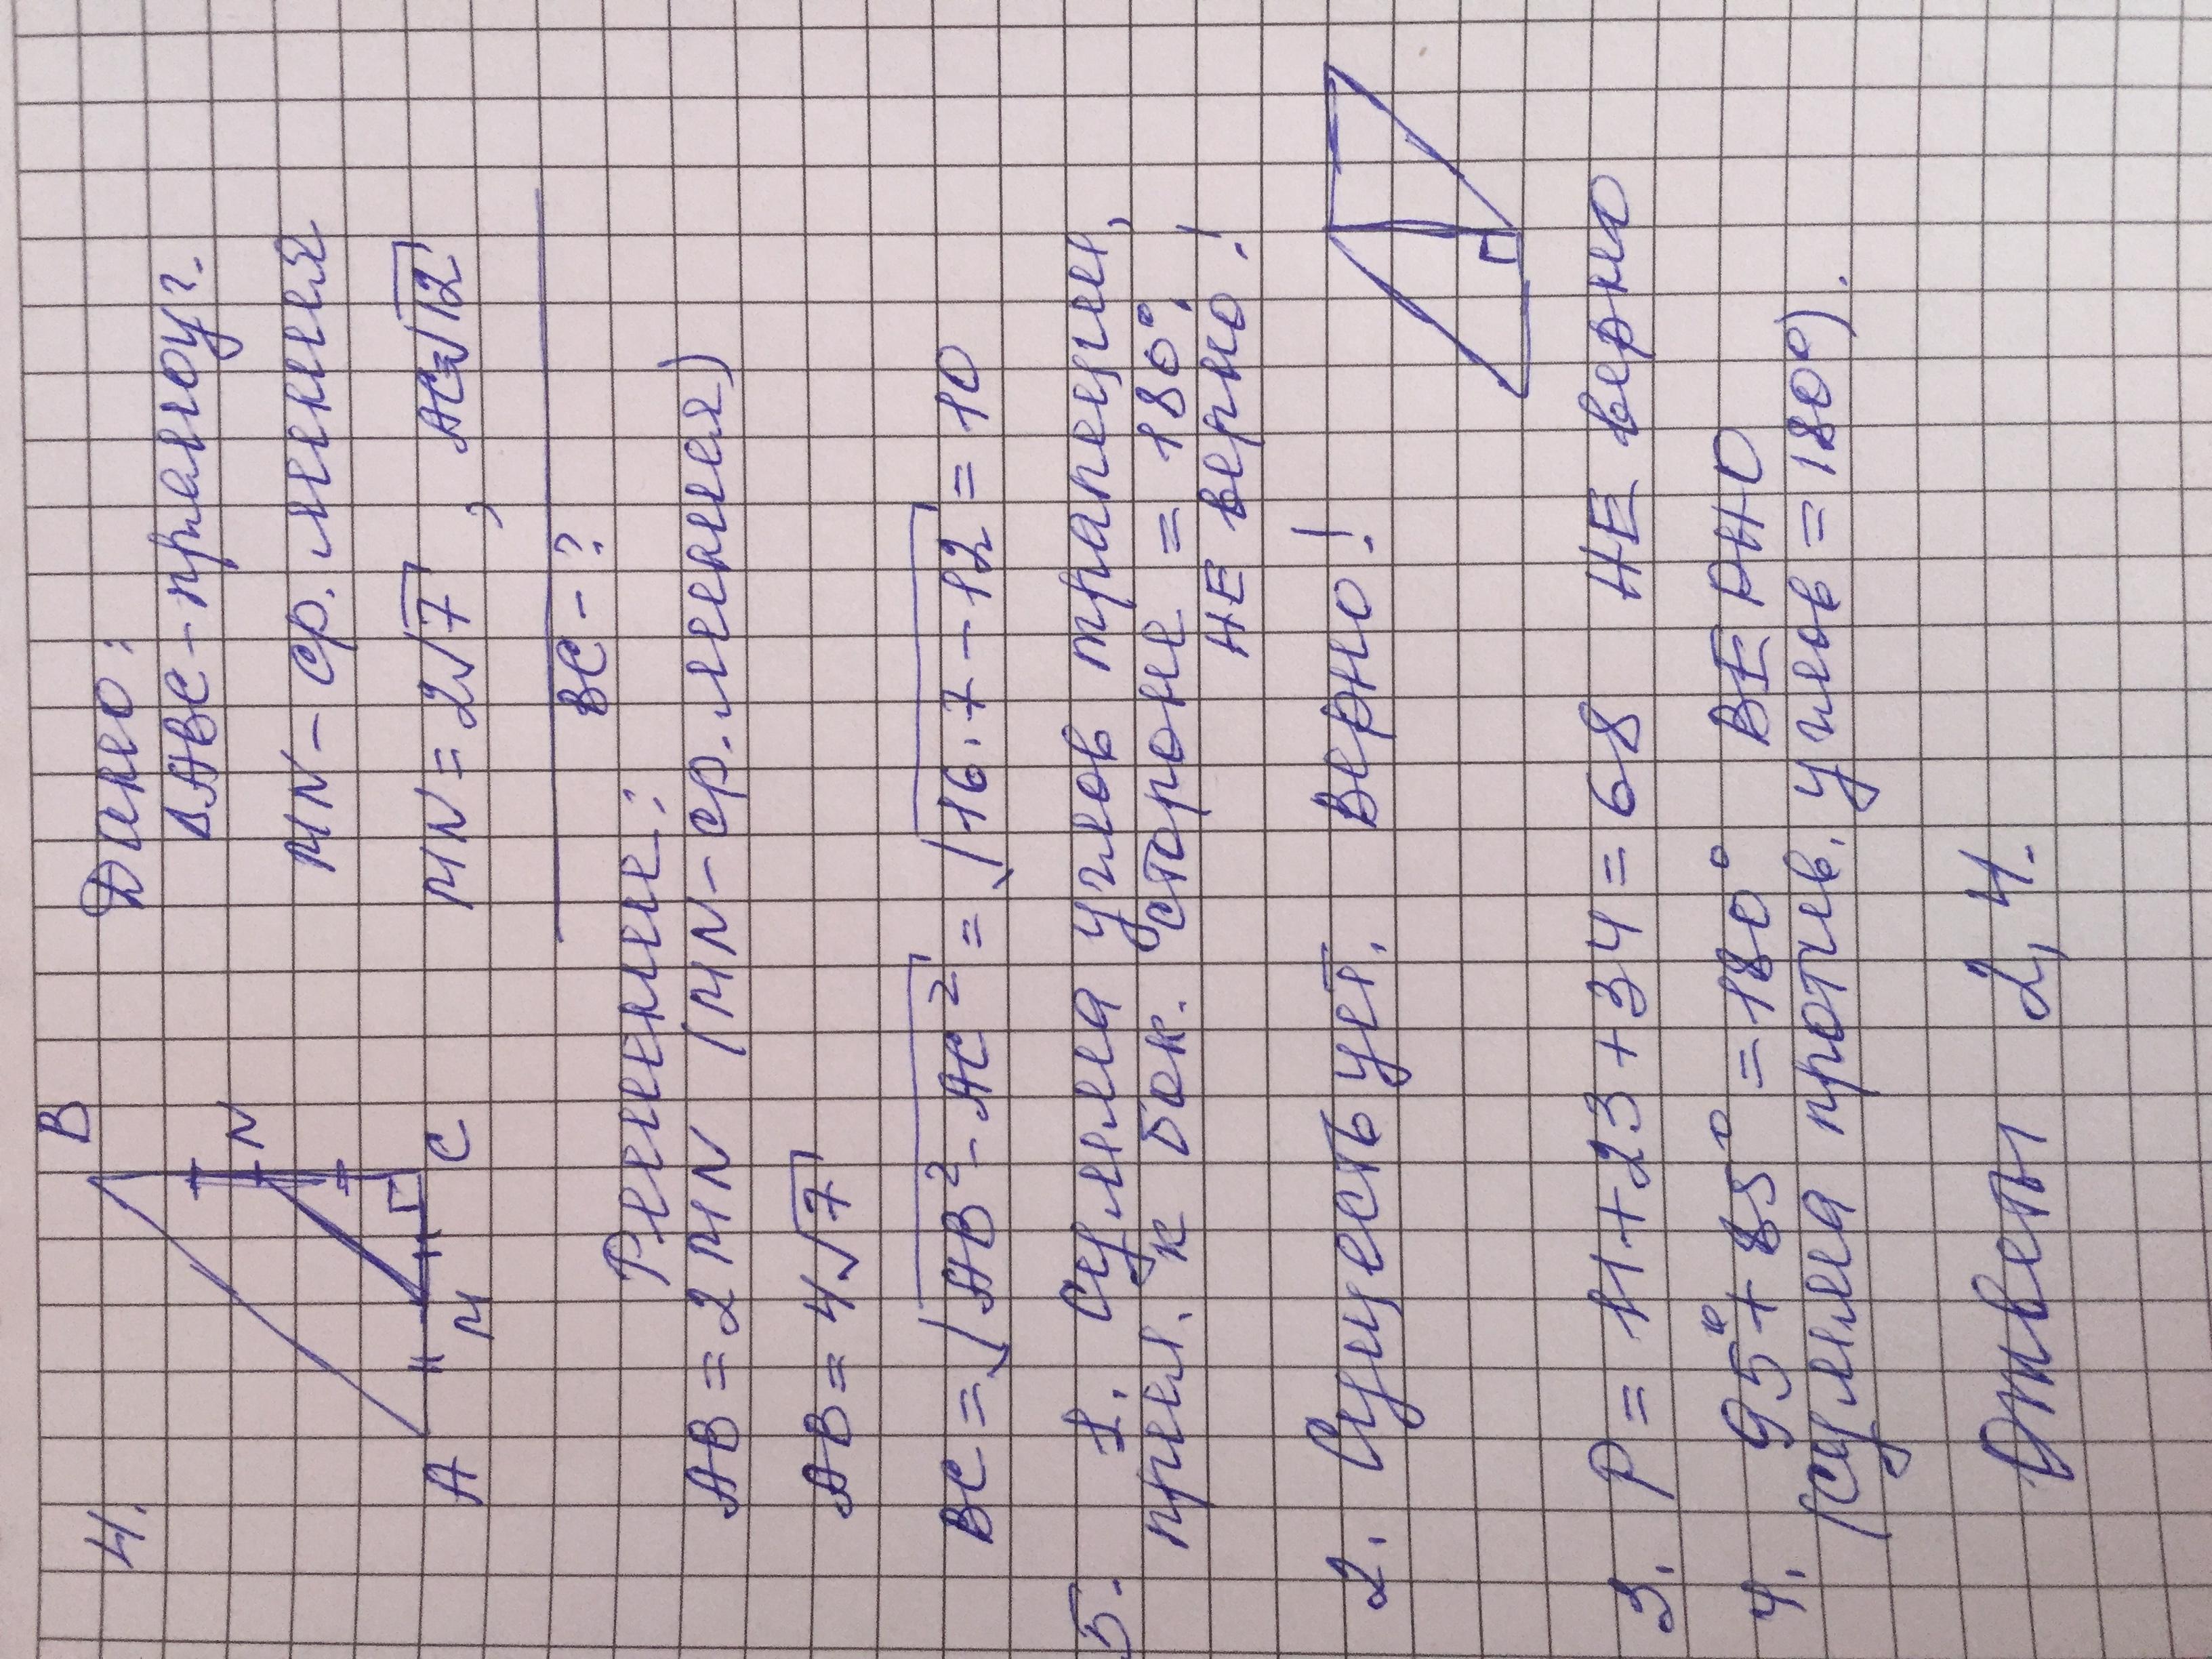 4.
B
N
A
M
C
Дано:
ΔABC - прямоуг.
MN - ср. линия
MN = 2√7, AC=√12
BC - ?
Решение:
AB = 2MN (MN - ср. линия)
AB = 4√7
BC = √AB² - AC² = √16·7 - 12 = 10
5. 1. Сумма углов трапеции,
прил. к бок. стороне = 180°,
НЕ верно!
2. Существует. Верно!
3. P = 11 + 23 + 34 = 68 НЕ верно
4. 95° + 85° = 180° ВЕРНО
(сумма против. углов = 180°).
Ответы 2, 4.